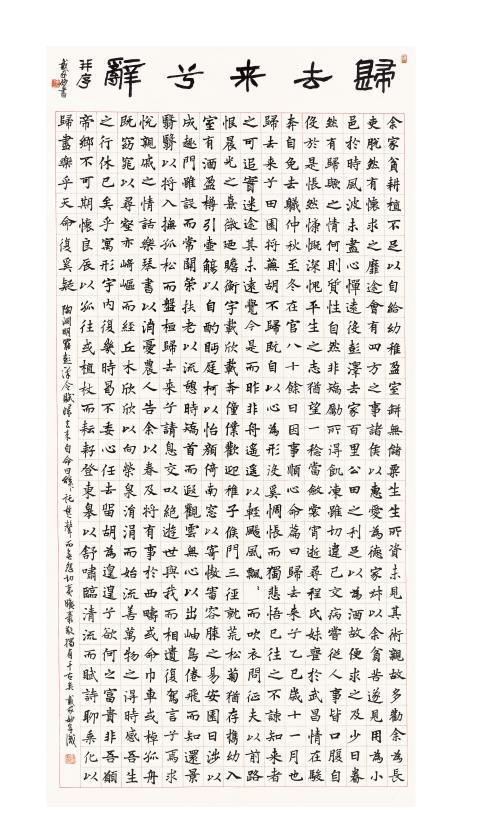 歸去来兮辭
并序
戴家妙書
余家貧耕植不足以自給幼稚盈室缾無儲粟生生所資未見其術親故多勸余為長
吏脱然有懷求之靡途會有四方之事諸侯以惠愛為德家叔以余貧苦遂見用為小
邑於時風波未靜心憚遠役彭澤去家百里公田之利足以為酒故便求之及少日眷
然有歸歟之情何則質性自然非矯勵所得飢凍雖切違己交病嘗從人事皆口腹自
役於是悵然慷慨深愧平生之志猶望一稔當斂裳宵逝尋程氏妹喪於武昌情在駿
奔自免去職仲秋至冬在官八十餘日因事順心命篇曰歸去来兮乙巳歲十一月也
歸去来兮田園將蕪胡不歸既自以心為形役奚惆悵而獨悲悟已往之不諫知来者
之可追實迷途其未遠覺今是而昨非舟遥遥以輕颺風飄飄而吹衣問征夫以前路
恨晨光之熹微廼瞻衡宇載欣載奔僮僕歡迎稚子候門三徑就荒松菊猶存携幼入
室有酒盈樽引壺觴以自酌眄庭柯以怡顔倚南窓以寄傲審容膝之易安園日涉以
成趣門雖設而常關策扶老以流憩時矯首而遐觀雲無心以出岫鳥倦飛而知還景
翳翳以將入撫孤松而盤桓歸去来兮請息交以絶遊世與我而相遺復駕言兮焉求
悦親戚之情話樂琴書以消憂農人告余以春及將有事於西疇或命巾車或棹孤舟
既窈窕以尋壑亦崎嶇而經丘木欣欣以向榮泉涓涓而始流善萬物之得時感吾生
之行休已矣乎寓形宇内復幾時曷不委心任去留胡為遑遑兮欲何之富貴非吾願
帝鄉不可期懷良辰以孤往或植杖而耘耔登東皋以舒嘯臨清流而賦詩聊乘化以
歸盡樂乎天命復奚疑
陶淵明罷彭澤令賦歸去来自命曰辭托楚聲而無怨切蕭散獨自千古矣戴家妙并識